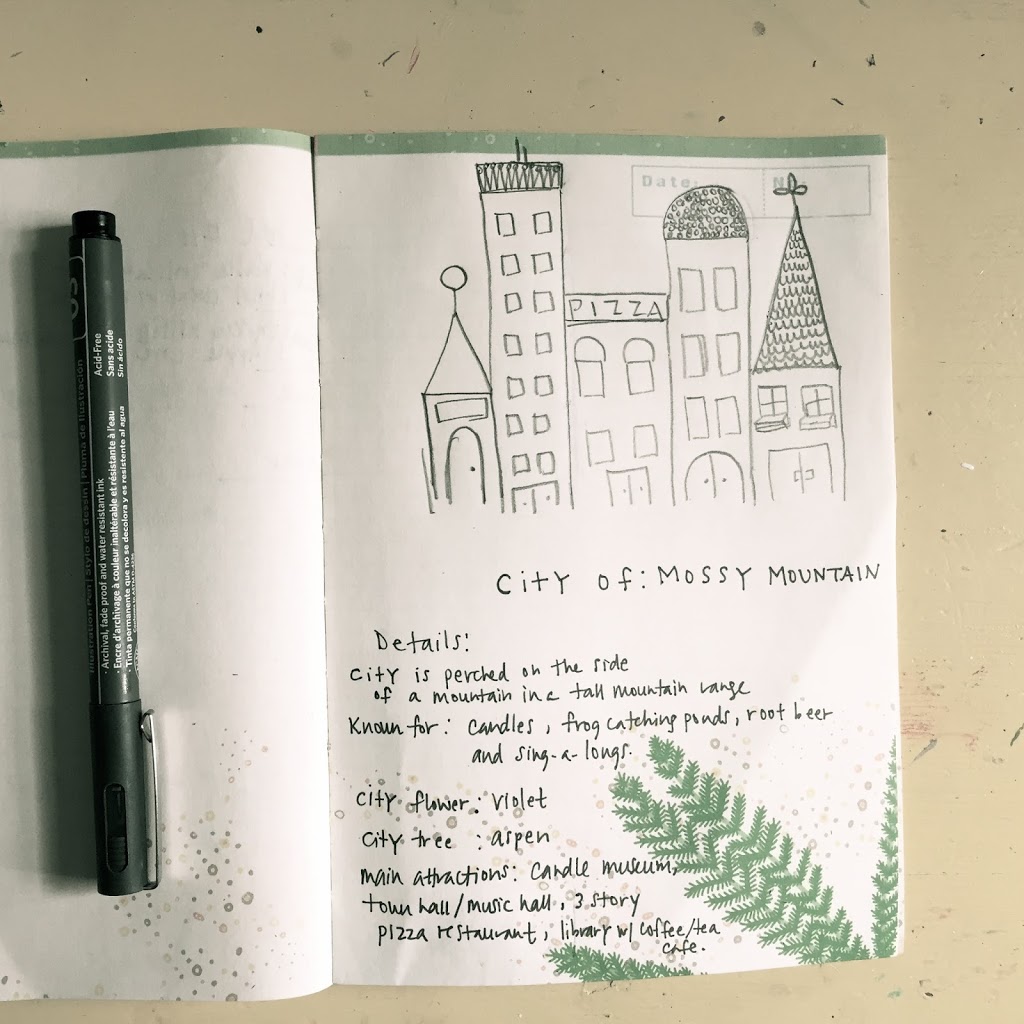 Date:
PIZZA
City of: MOSSY MOUNTAIN
Details:
City is perched on the side
of a mountain in a tall mountain range
Known for: candles, frog catching ponds, root beer
and sing-a-longs.
City flower: violet
City tree : aspen
main attractions: candle museum,
town hall/music hall, 3 story
pizza restaurant, library w/ coffee/tea
cafe.
05
Acid-Free
Sans acide
Sin ácido
Illustration Pen | Stylo de dessin | Pluma de Ilustración
· Archival, fade proof and water resistant ink
· Encre d'archivage à couleur inaltérable et résistante à l'eau
· Tinta permanente que no se decolora y es resistente al agua